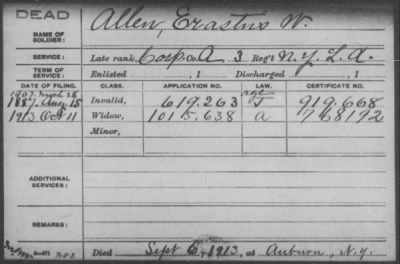 DEAD
NAME OF SOLDIER: Allen, Erastus W.
SERVICE: Late rank, Corp. Co. A 3 Reg't N.Y. L.A.
TERM OF SERVICE: Enlisted , 1 Discharged , 1
DATE OF FILING. CLASS. APPLICATION NO. LAW. CERTIFICATE NO.
1907 age
1887 Aug. 15 Invalid, 619.263 J 919.668
1913 Oct 11 Widow, 1015.638 a 768192
Minor,
ADDITIONAL SERVICES:
REMARKS:
Died Sept 6, 1913, at Auburn, N.Y.